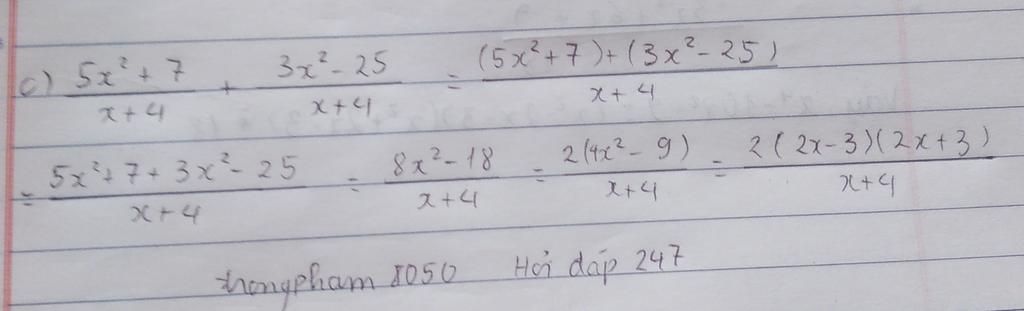 c) (5x² + 7)/(x + 4) + (3x² - 25)/(x + 4) = ((5x² + 7) + (3x² - 25))/(x + 4)
= (5x² + 7 + 3x² - 25)/(x + 4) = (8x² - 18)/(x + 4) = 2(4x² - 9)/(x + 4) = 2(2x - 3)(2x + 3)/(x + 4)
trongpham 8050 Hỏi đáp 247